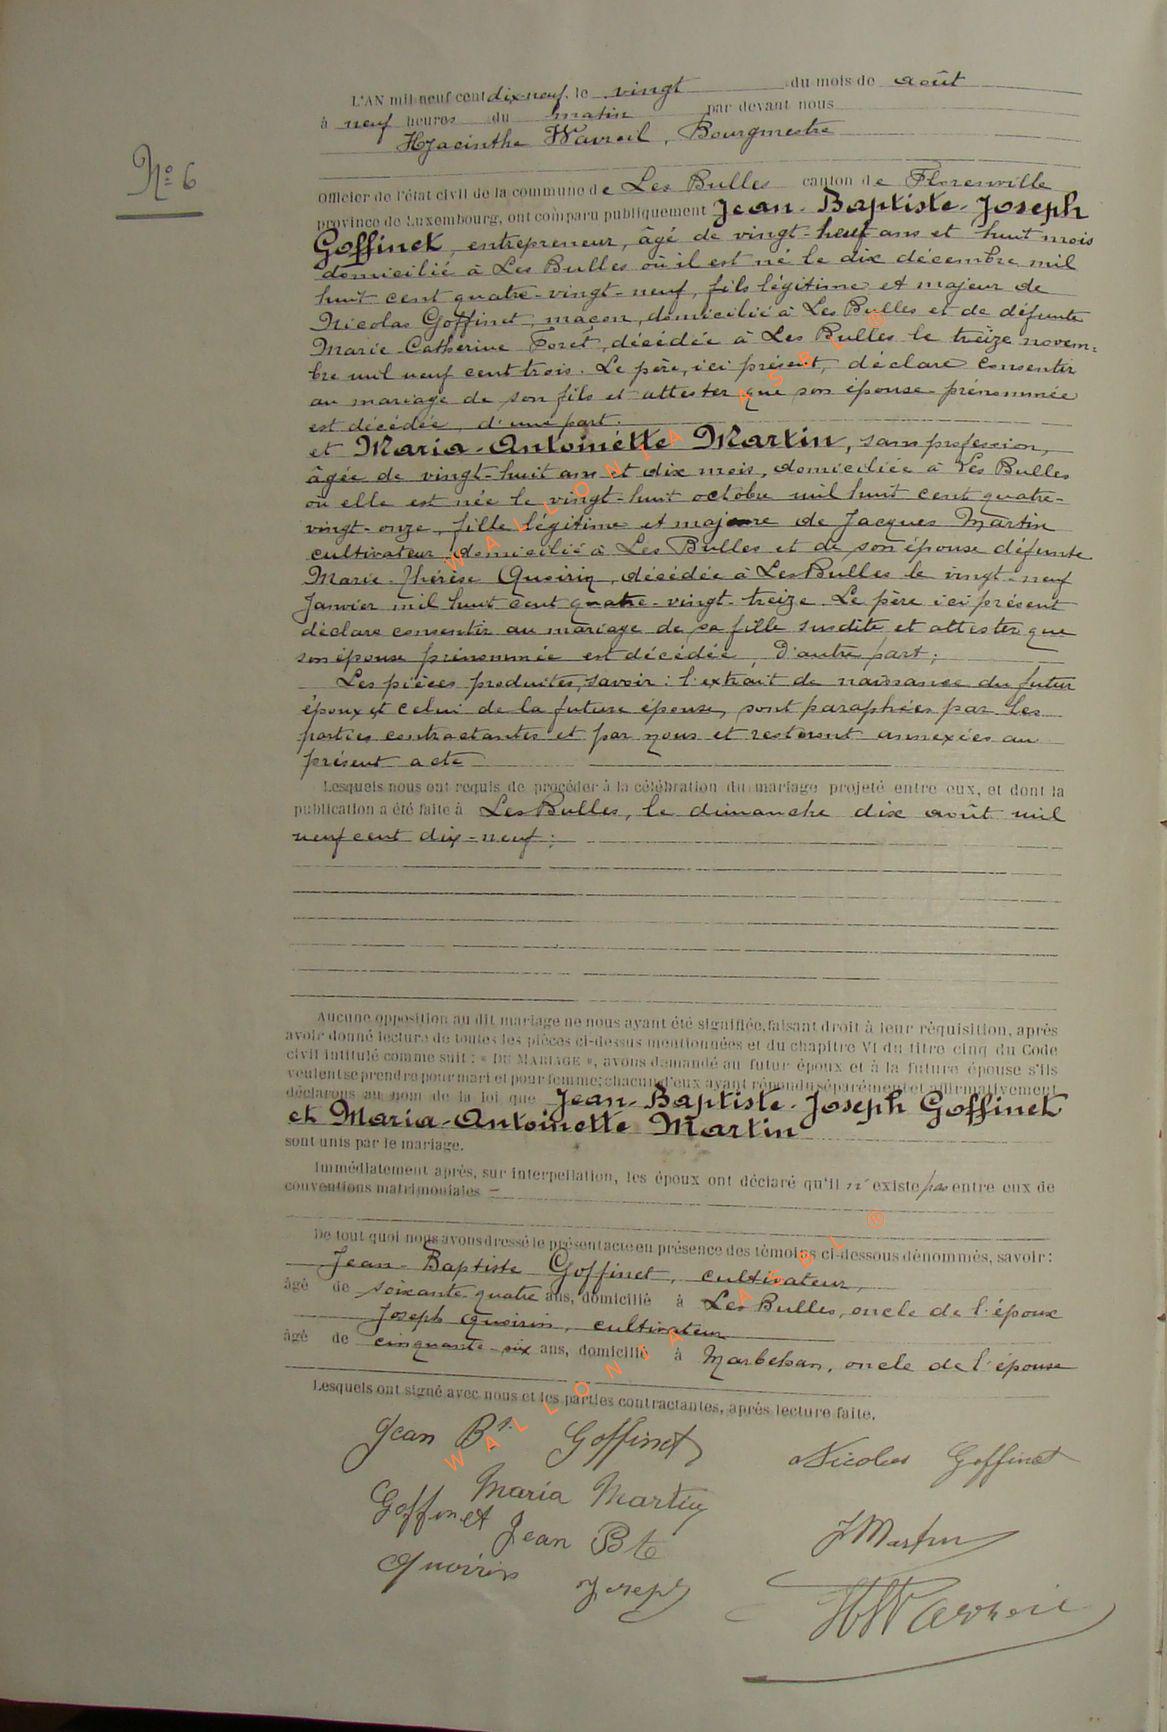 N° 6
L'AN mil neuf cent dix-neuf, le vingt du mois de août
à neuf heures du matin par devant nous
Hyacinthe Wavreil, Bourgmestre
Officier de l'état civil de la commune de Les Bulles canton de Florenville
province de Luxembourg, ont comparu publiquement Jean-Baptiste-Joseph
Goffinet, entrepreneur, âgé de vingt-neuf ans et huit mois
domicilié à Les Bulles où il est né le dix décembre mil
huit cent quatre-vingt-neuf, fils légitime et majeur de
Nicolas Goffinet, maçon, domicilié à Les Bulles et de défunte
Marie-Catherine Foret, décédée à Les Bulles le treize novem=
bre mil neuf cent trois. Le père, ici présent, déclare consentir
au mariage de son fils et attester que son épouse prénommée
est décédée, d'une part.
et Maria-Antoinette Martin, sans profession,
âgée de vingt-huit ans et dix mois, domiciliée à Les Bulles
où elle est née le vingt-huit octobre mil huit cent quatre-
vingt-onze, fille légitime et majeure de Jacques Martin
cultivateur domicilié à Les Bulles et de son épouse défunte
Marie-Thérèse Quoirin, décédée à Les Bulles le vingt-neuf
Janvier mil huit cent quatre-vingt-treize. Le père ici présent
déclare consentir au mariage de sa fille susdite et attester que
son épouse prénommée est décédée, D'autre part;
Les pièces produites, savoir: l'extrait de naissance du futur
époux et celui de la future épouse, sont paraphées par les
parties contractantes et par nous et resteront annexées au
présent acte
Lesquels nous ont requis de procéder à la célébration du mariage projeté entre eux, et dont la
publication a été faite à Les Bulles, le dimanche dix août mil
neuf cent dix-neuf;
Aucune opposition au dit mariage ne nous ayant été signifiée, faisant droit à leur réquisition, après
avoir donné lecture de toutes les pièces ci-dessus mentionnées et du chapitre VI du titre cinq du Code
civil intitulé comme suit : « DU MARIAGE », avons demandé au futur époux et à la future épouse s'ils
veulent se prendre pour mari et pour femme; chacun d'eux ayant répondu séparément et affirmativement,
déclarons au nom de la loi que Jean-Baptiste-Joseph Goffinet
et Maria-Antoinette Martin
sont unis par le mariage.
Immédiatement après, sur interpellation, les époux ont déclaré qu'il n'existe pas entre eux de
conventions matrimoniales
De tout quoi nous avons dressé le présent acte en présence des témoins ci-dessous dénommés, savoir :
Jean-Baptiste Goffinet, cultivateur,
âgé de soixante-quatre ans, domicilié à Les Bulles, oncle de l'époux
Joseph Quoirin, cultivateur
âgé de cinquante-six ans, domicilié à Marbehan, oncle de l'épouse
Lesquels ont signé avec nous et les parties contractantes, après lecture faite.
Jean Bte Goffinet Nicolas Goffinet
Maria Martin
Goffinet Jean Bte J Martin
Quoirin Joseph
H Wavreil
WALLONIA ASBL ®
WALLONIA ASBL ®